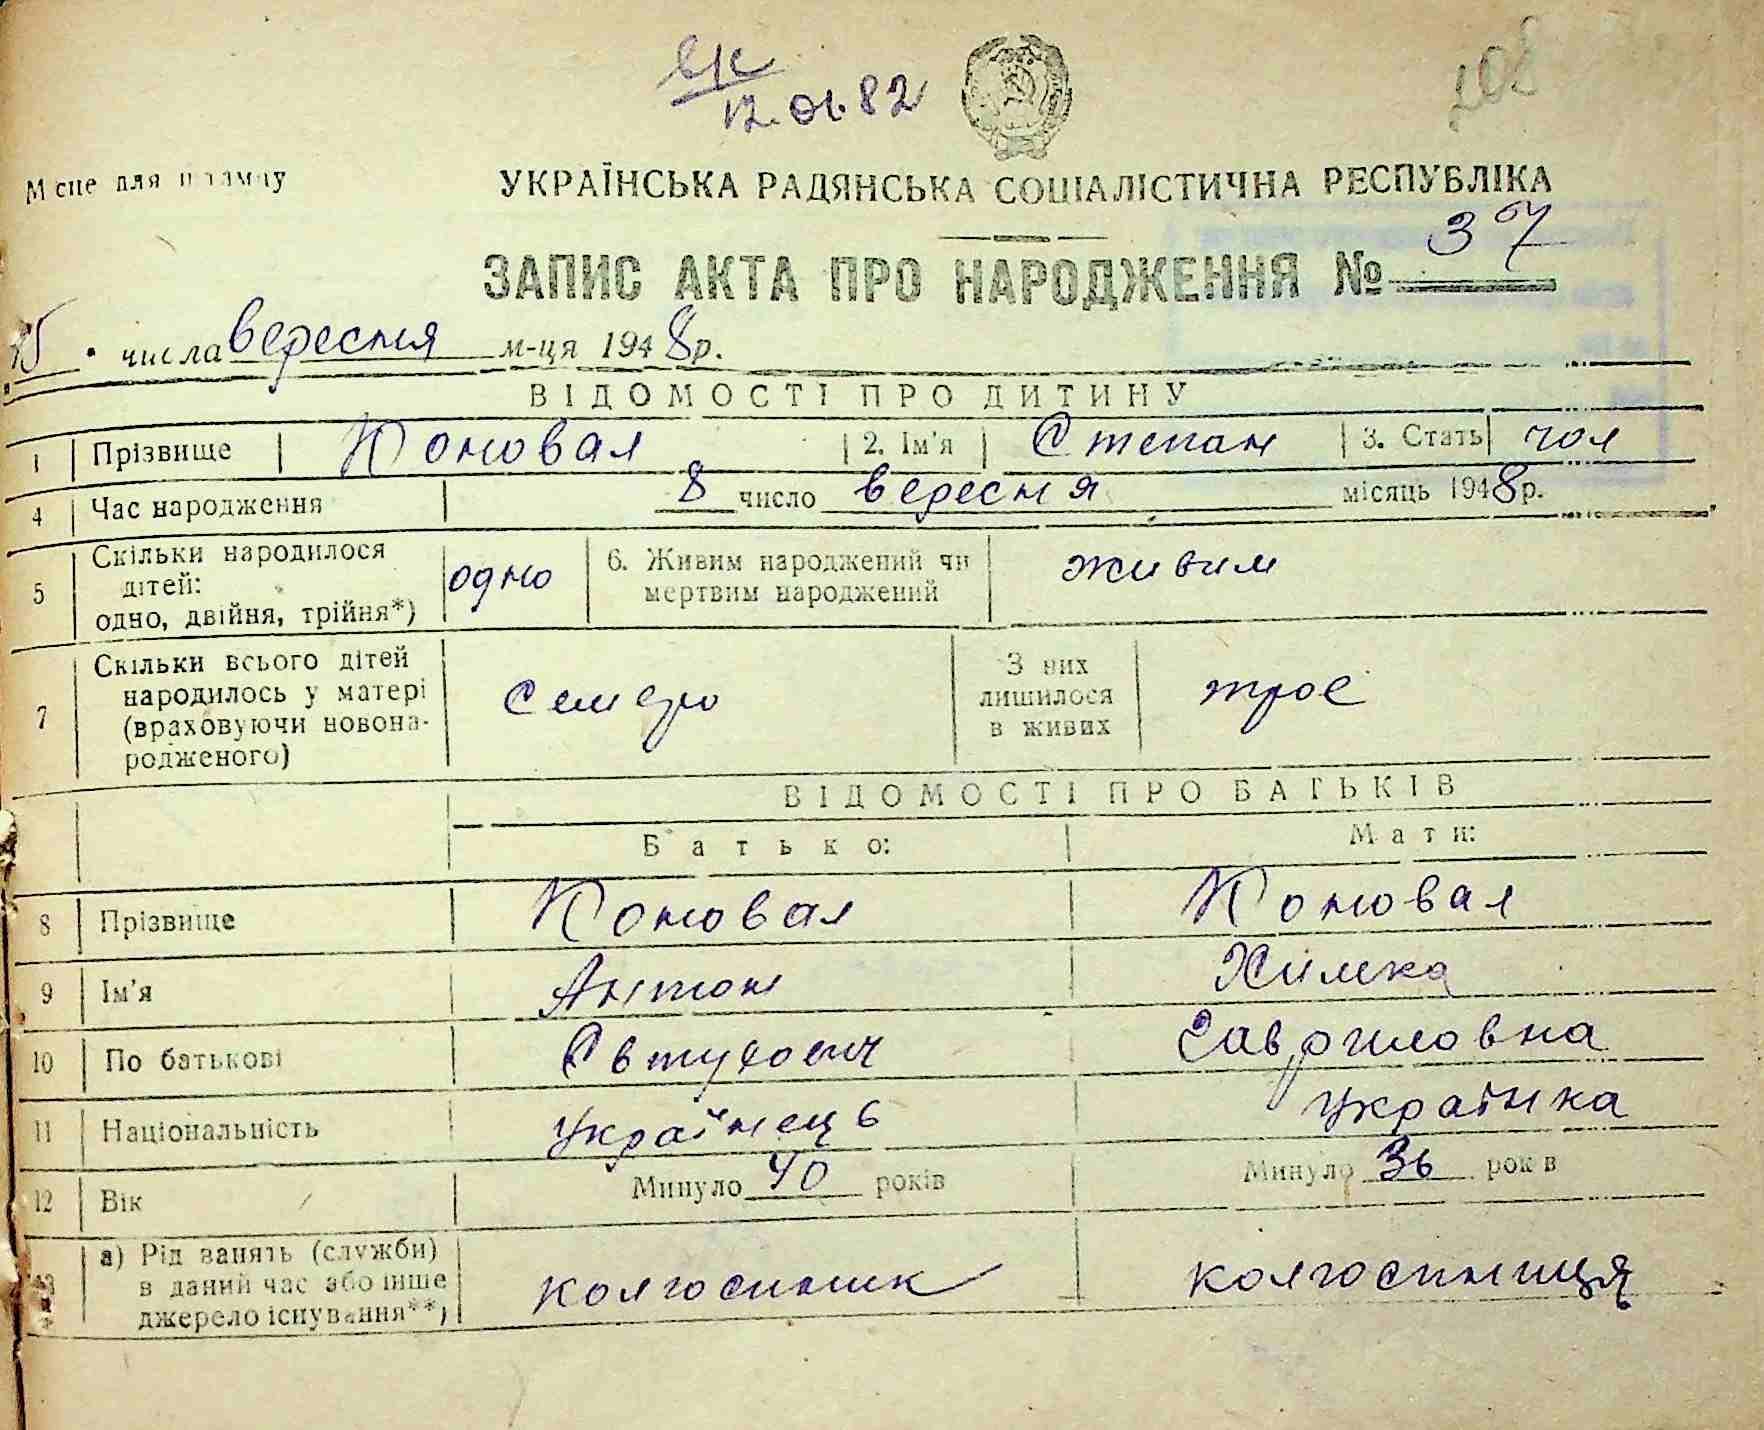 12.01.82
208
Місце для штампу
УКРАЇНСЬКА РАДЯНСЬКА СОЦІАЛІСТИЧНА РЕСПУБЛІКА
ЗАПИС АКТА ПРО НАРОДЖЕННЯ № 37
15 числа вересня м-ця 1948 р.
ВІДОМОСТІ ПРО ДИТИНУ
1 Прізвище Коновал 2. Ім'я Степан 3. Стать чол
4 Час народження 8 число вересня місяць 1948 р.
5 Скільки народилося дітей: одно, двійня, трійня*) одно 6. Живим народжений чи мертвим народжений живим
7 Скільки всього дітей народилось у матері (враховуючи новонародженого) семеро З них лишилося в живих троє
ВІДОМОСТІ ПРО БАТЬКІВ
Батько: Мати:
8 Прізвище Коновал Коновал
9 Ім'я Антон Химка
10 По батькові Євтухович Гавриловна
11 Національність українець українка
12 Вік Минуло 40 років Минуло 36 років
13 а) Рід занять (служби) в даний час або інше джерело існування**) колгоспник колгоспниця